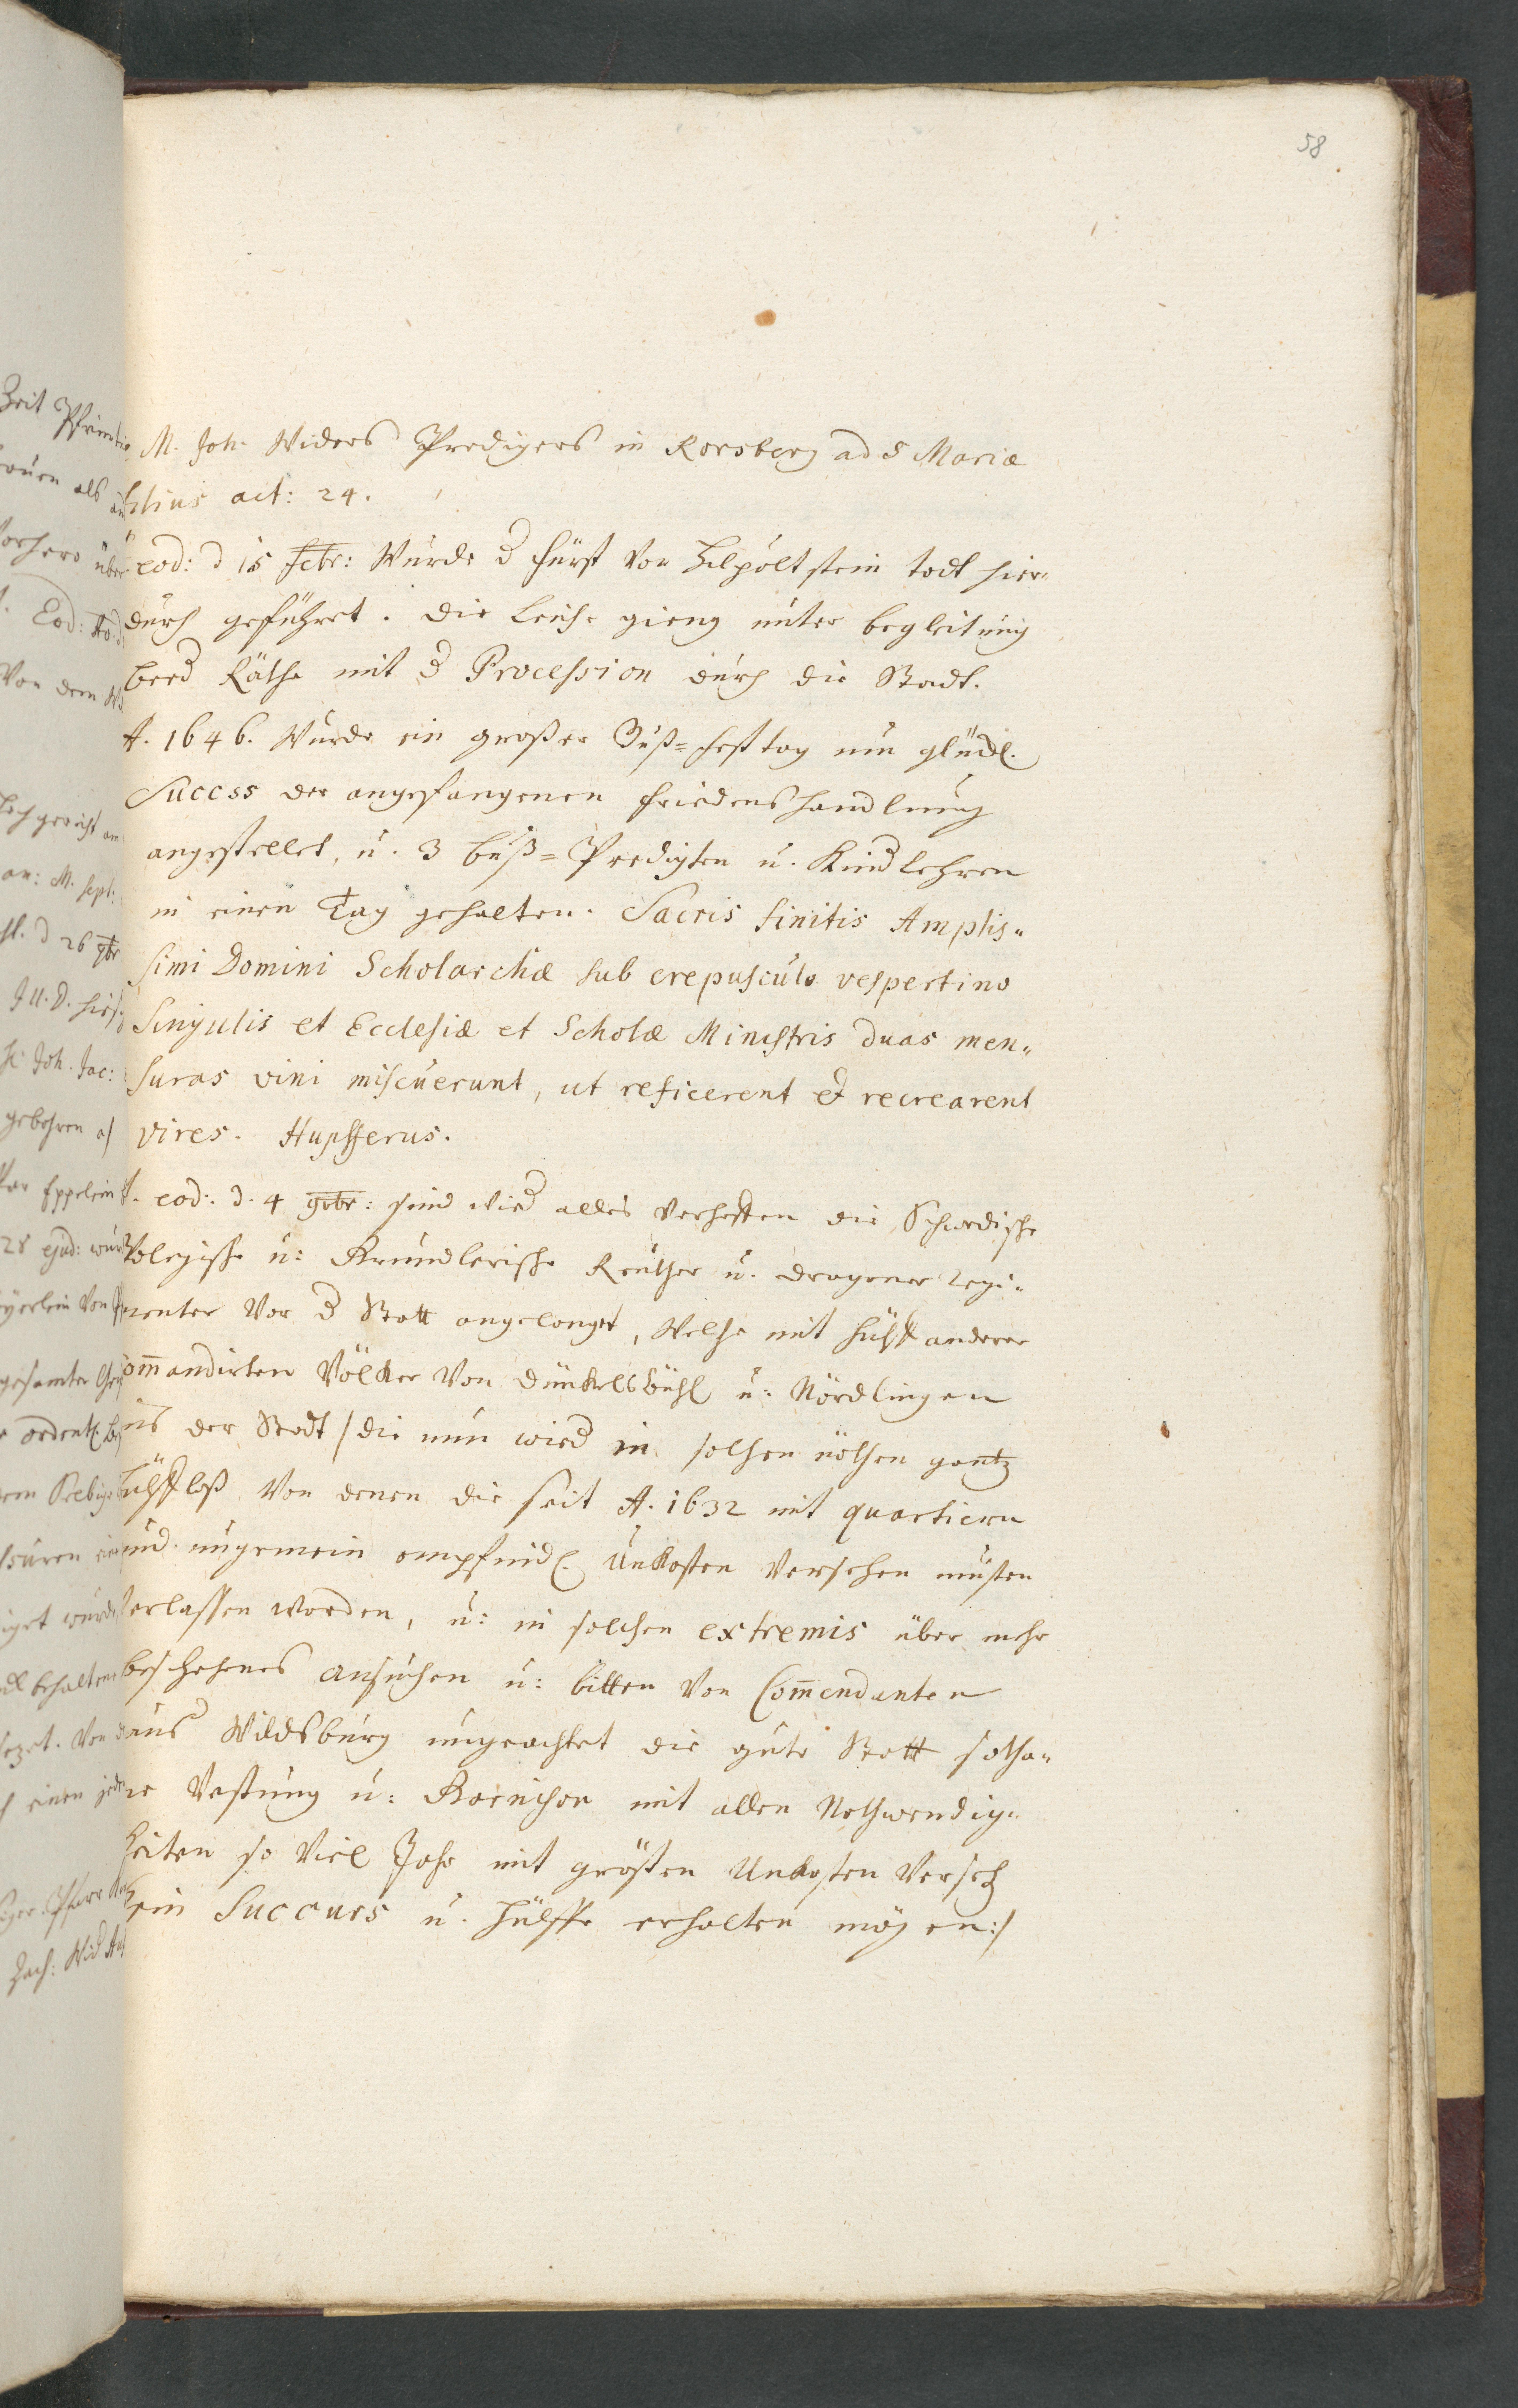 58
M. Joh. Widers Predigers in Rorsberg ad S Mariæ
filius aet: 24.
eod: d 15 febr: Wurde d Fürst von Hilpoltstein todt hier
durch geführet. Die Leiche gieng unter begleitung
beed Räthe mit d Procession durch die Stadt.
A. 1646. Wurde ein großer Buß=fest tag um glückl.
Success der angefangenen friedenshandlung
angestellet, u. 3 buß=Predigten u. Kindlehren
in einen Tag gehalten. Sacris finitis Amplis„
simi Domini Scholarchæ sub crepusculo vespertino
Singulis et Ecclesiæ et Scholæ Ministris duas men„
suras vini miscuerunt, ut reficerent et recrearent
vires. Hupfferus.
A. eod: d. 4 9vbr: sind wied alles verhoffen die Schwedische
u: Reuther u. dragoner regi„
menter vor d Statt angelanget, Welche mit hülff anderer
commandirten Völcker von Dünckelsbühl u: Nördlingen
aus der Stadt / die nun wied in solchen nöthen gantz
hülffloß von denen die seit A. 1632 mit quartiern
und ungemein empfindl. Unkosten versehen müsten
verlassen worden, u: in solchen extremis über mehr
beschehenes ansuchen u: bitten von Commendanten
aus Wildsburg ungeachtet die gute Statt sotha„
ne Vestung u: mit allen Nothwendig„
keiten so viel Jahr mit grösten Unkosten verseh
kein Succurs u. hülffe erhalten mögen:/